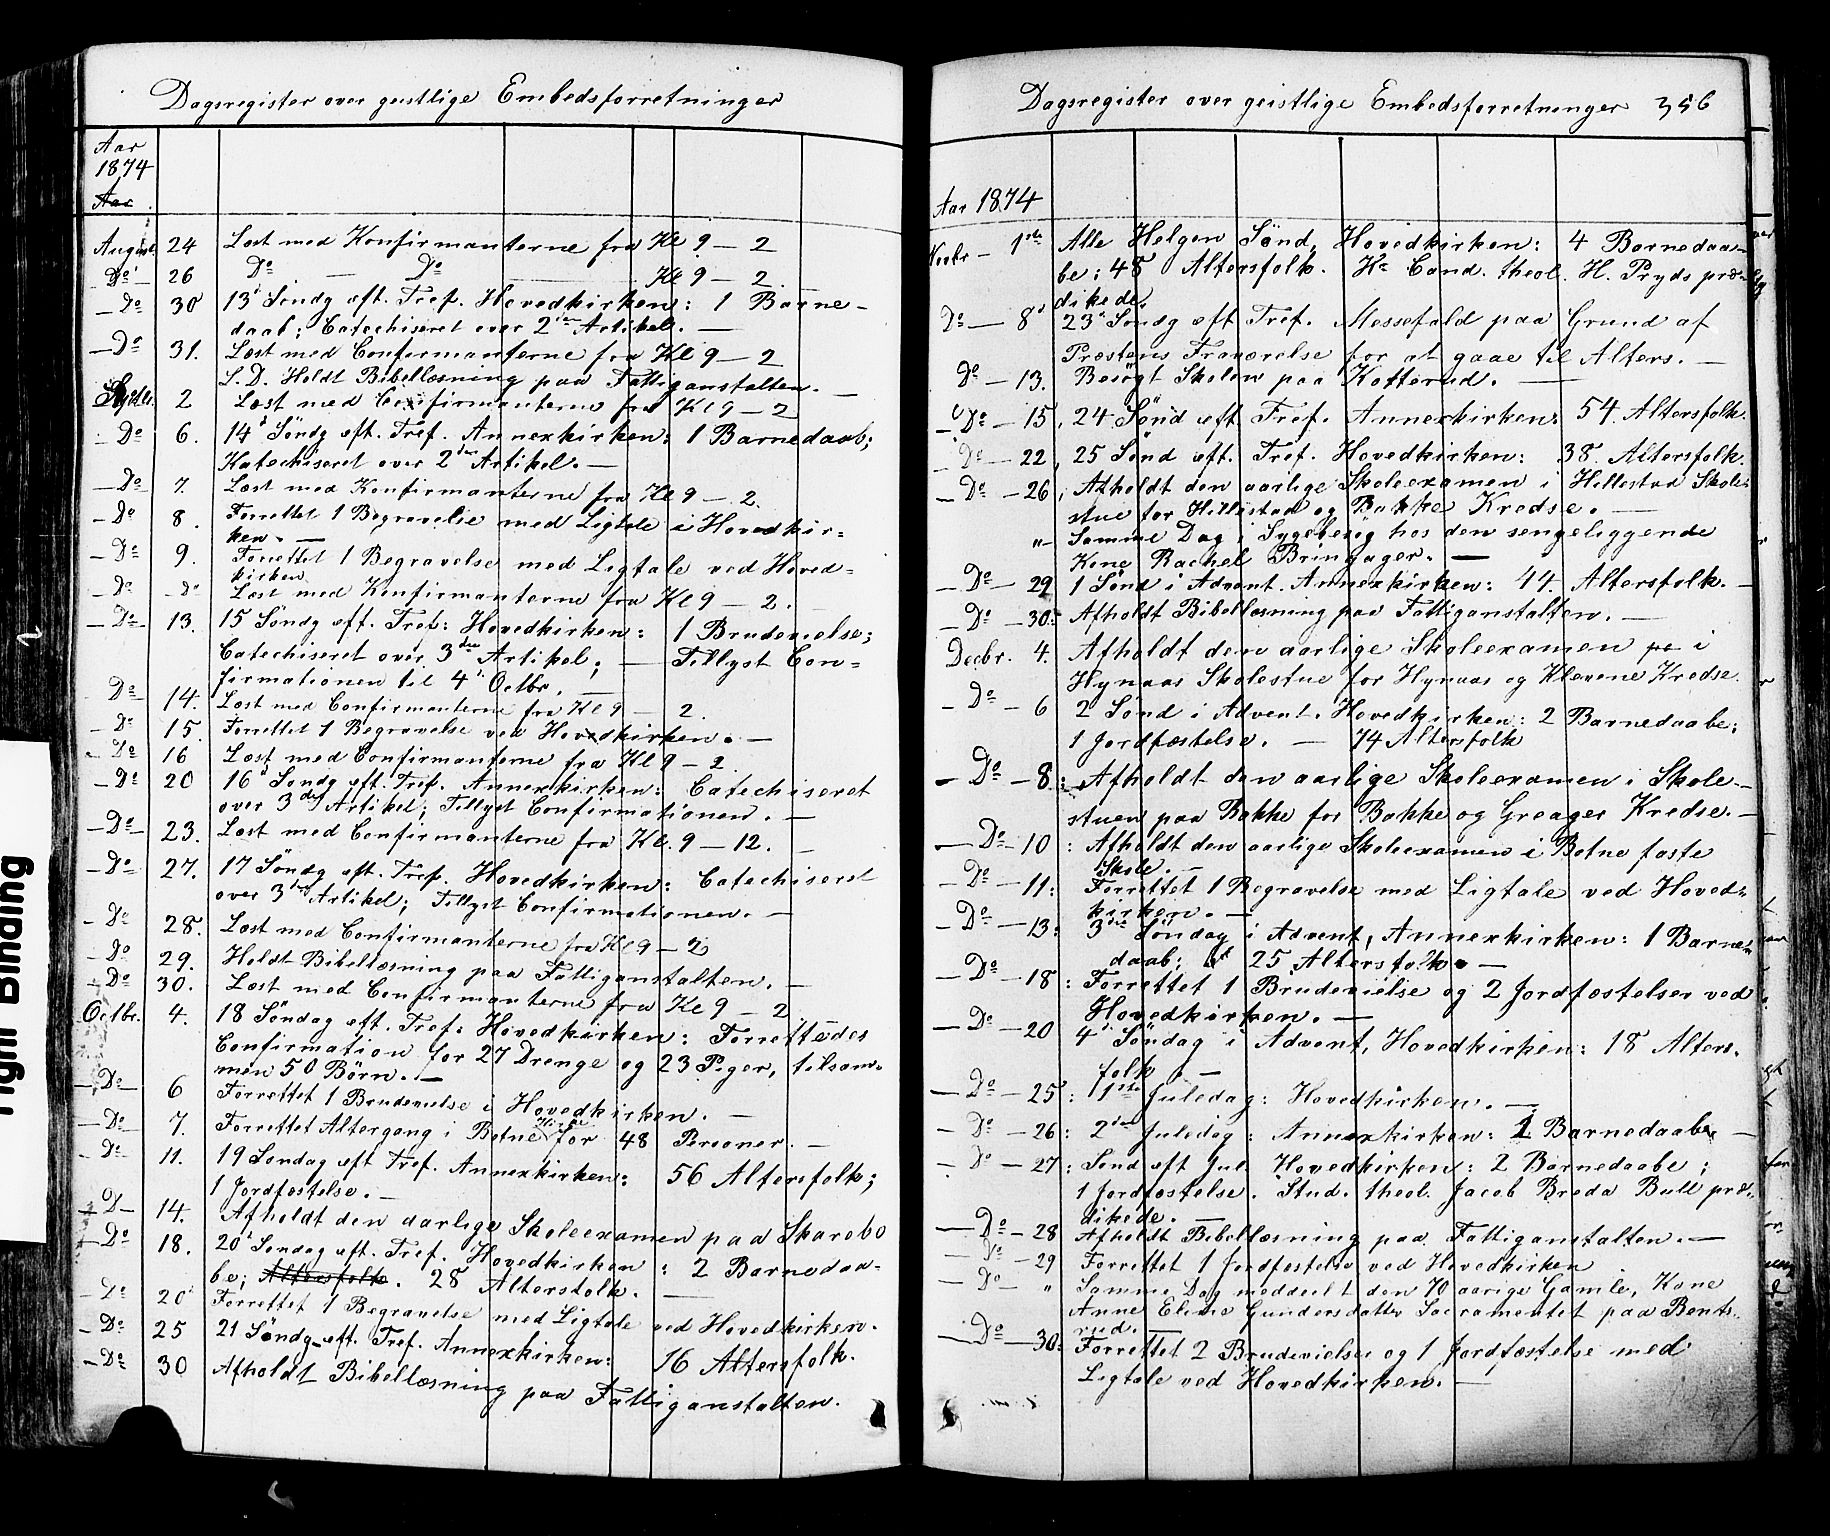 Dagsregister over geistlige Embedsforretninger
Aar
1874
Aar
August 24 Læst med Konfirmanterne fra Kl 9 – 2
Do 26 Do — Do — Kl 9 – 2
Do 30 13d Søndg eft. Tref. Hovedkirken: 1 Barne-
daab; Catechiseret over 2den Artikel. —
Do 31. Læst med Confirmanterne fra Kl 9 – 2
S.D. Holdt Bibellæsning paa Fattiganstalten. —
Septbr. 2 Læst med Confirmanterne fra Kl 9 – 2
Do 6. 14d Søndg eft. Tref. Annexkirken: 1 Barnedaab;
Katechiseret over 2den Artikel. —
Do 7. Læst med Konfirmanterne fra Kl 9 – 2.
Do 8. Forrettet 1 Begravelse med Ligtale i Hovedkir=
ken. —
Do 9. Forrettet 1 Begravelse med Ligtale ved Hoved=
kirken
Do Do Læst med Konfirmanterne fra Kl 9 – 2.
Do 13. 15 Søndg eft. Tref: Hovedkirken: 1 Brudevielse;
Catechiseret over 3die Artikel; — Tillyst Con=
firmationen til 4d Octbr. —
Do 14. Læst med Confirmanterne fra Kl 9 – 2.
Do 15. Forrettet 1 Begravelse ved Hovedkirken. —
Do 16 Læst med Confirmanterne fra Kl 9 – 2
Do 20 16d Søndg eft. Tref. Annexkirken: Catechiseret
over 3die Artikel; Tillyst Confirmationen. —
Do 23. Læst med Confirmanterne fra Kl. 9 – 12. —
Do 27. 17 Søndg eft. Tref. Hovedkirken: Catechiseret
over 3die Artikel; Tillyst Confirmationen. —
Do 28. Læst med Confirmanterne fra Kl 9 – 2
Do 29. Holdt Bibellæsning paa Fattiganstalten. —
Do 30. Læst med Confirmanterne fra Kl 9 – 2
Octbr. 4. 18 Søndag eft. Tref: Hovedkirken: Forrettedes
Confirmation for 27 Drenge og 23 Piger, tilsam=
men 50 Börn. —
Do 6 Forrettet 1 Brudevielse i Hovedkirken. —
Do 7. Forrettet Altergang i Botne Kirke for 48 Personer. —
Do 11. 19 Søndag eft Tref. Annexkirken: 56 Altersfolk;
1 Jordfæstelse. —
D 14. Afholdt den aarlige Skoleexamen paa Skarebo
Do 18. 20d Søndag eft. Tref. Hovedkirken: 2 Barnedaa-
be; Altersfolk. 28 Altersfolk. —
Do 20 Forrettet 1 Begravelse med Ligtale ved Hovedkirken.
Do 25 21 Søndg eft. Tref. Annexkirken: 16 Altersfolk.
Do 30 Afholdt Bibellæsning paa Fattiganstalten.
Dagsregister over geistlige Embedsforretninger 356
Aar 1874
Novbr – 1ste Alle Helgen Sønd, Hovedkirken: 4 Barnedaa-
be; 48 Altersfolk. Hr Cand. theol. H. Pryds præ-
dikede.
Do — 8d 23d Søndg eft Tref. Messefald paa Grund af
Præstens Fraværelse for at gaae til Alters. —
Do — 13. Besøgt Skolen paa Kotterud. —
Do — 15. 24 Sønd eft Tref. Annexkirken: 54 Altersfolk.
Do — 22 25 Sønd eft. Tref. Hovedkirken: 38 Altersfolk.
Do — 26 Afholdt den aarlige Skoleexamen i Hillestad Skole-
stue for Hillestad og Bakke Kredse. —
„ Samme Dag i Sygebesøg hos den sengeliggende
Kone Rachel Bringager. —
Do — 29 1 Sønd i Advent. Annexkirken: 44 Altersfolk. —
Do — 30. Afholdt Bibellæsning paa Fattiganstalten. —
Decbr. 4. Afholdt den aarlige Skoleexamen pa i
Hynaas Skolestue for Hynaas og Klevene Kredse.
Do — 6 2 Sønd i Advent. Hovedkirken: 2 Barnedaabe;
1 Jordfæstelse. — 74 Altersfolk
Do — 8: Afholdt den aarlige Skoleexamen i Skole-
stuen paa Bakke for Bakke og Greager Kredse. —
Do — 10: Afholdt den aarlige Skoleexamen i Botne faste
Skole. —
Do — 11: Forrettet 1 Begravelse med Ligtale ved Hoved=
kirken. —
Do — 13: 3die Søndag i Advent, Annexkirken: 1 Barne=
daab; 25 Altersfolk. —
Do — 18: Forrettet 1 Brudevielse og 2 Jordfæstelser ved
Hovedkirken. —
Do — 20 4d Søndag i Advent, Hovedkirken: 18 Alters-
folk. —
Do — 25: 1ste Juledag: Hovedkirken. —
Do — 26: 2den Juledag: Annexkirken: 1 Barnedaabe. —
Do — 27: Sønd eft Jul. Hovedkirken: 2 Barnedaabe;
1 Jordfæstelse. Stud. theol. Jacob Breda Bull præ-
dikede. —
Do — 28 Afholdt Bibellæsning paa Fattiganstalten. —
Do — 29 Forrettet 1 Jordfæstelse ved Hovedkirken
Do — „ Samme Dag meddeelt den 70 aarige Gamle, Kone
Anne Eline Gundersdatter Sacramentet paa Bents-
rud. —
Do — 30: Forrettet 2 Brudevielser og 1 Jordfæstelse med
Ligtale ved Hovedkirken. —
Tight Binding